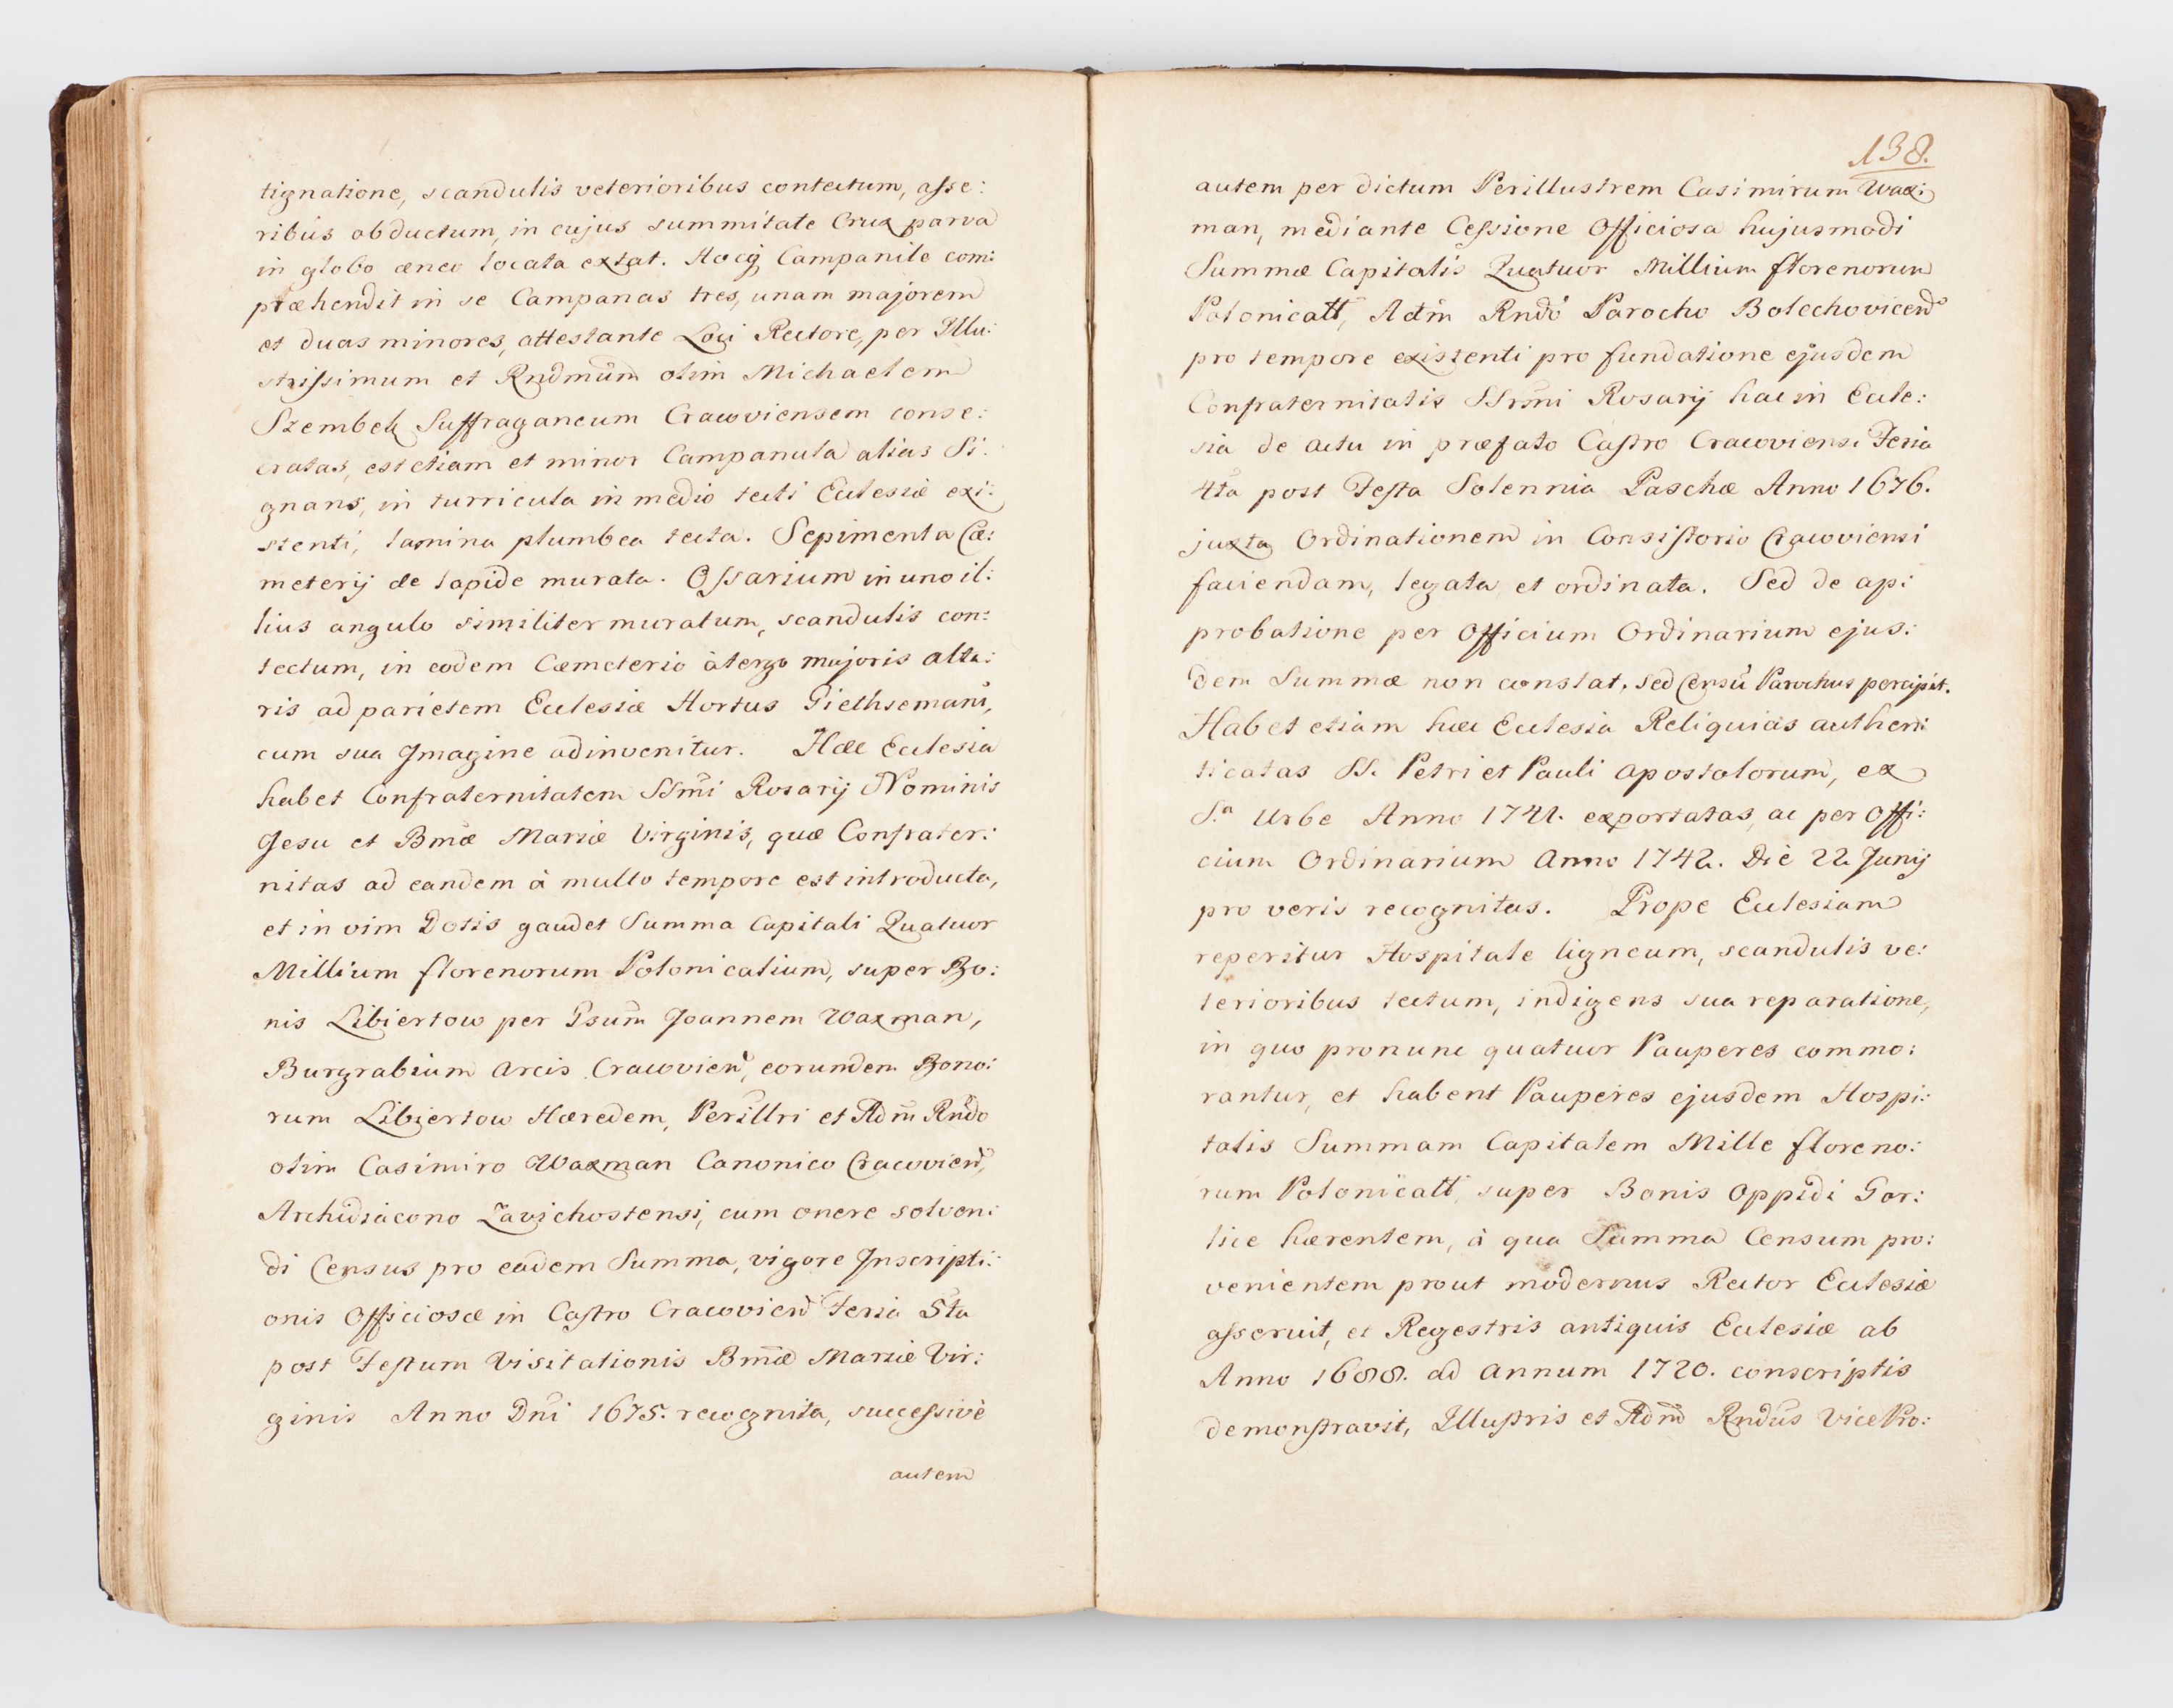 tignatione, scandulis veterioribus contectum, asse:
ribus obductum, in cujus summitate Crux parva
in globo æneo locata extat. Hocq Campanile com:
præhendit in se Campanas tres, unam majorem
et duas minores, attestante Loci Rectore, per Illu:
strissimum et Rndmum olim Michaelem
Szembek Suffraganeum Cracoviensem conse:
cratas, est etiam et minor Campanula alias Si:
gnans, in turricula in medio tecti Ecclesiæ exi:
stenti, lamina plumbea tecta. Sepimenta Cæ:
meterij de lapide murata. Ossarium in uno il:
lius angulo similiter muratum, scandulis con:
tectum, in eodem Cæmeterio à tergo majoris alta:
ris ad parietem Ecclesiæ Hortus Giethsemani,
cum sua Imagine adinvenitur. Hæc Ecclesia
habet Confraternitatem SSmi Rosarij Nominis
Jesu et Bmæ Mariæ Virginis, quæ Confrater:
nitas ad eandem à multo tempore est introducta,
et in vim Dotis gaudet Summa Capitali Quatuor
Millium florenorum Polonicalium, super Bo:
nis Libiertow per Gsum Joannem Waxman,
Burgrabium Arcis Cracovien, eorundem Bono:
rum Libiertow Hæredem, Perillri et Adm Rndo
olim Casimiro Waxman Canonico Cracovien,
Archidiacono Zavichostensi, cum onere solven:
di Census pro eadem Summa, vigore Inscripti:
onis Officiosæ in Castro Cracovien Feria 5ta
post Festum Visitationis Bmæ Mariæ Vir:
ginis Anno Dni 1675. recognita, successivè
autem
138.
autem per dictum Perillustrem Casimirum Wax:
man, mediante Cessione Officiosa hujusmodi
Summæ Capitalis Quatuor Millium florenorum
Polonicall, Adm Rndo Parocho Bolechovicen
pro tempore existenti pro fundatione ejusdem
Confraternitatis SSmi Rosarij hac in Eccle:
sia de actu in præfato Castro Cracoviensi Feria
4ta post Festa Solennia Paschæ Anno 1676.
juxta Ordinationem in Consistorio Cracoviensi
faciendam, legata et ordinata. Sed de ap:
probatione per Officium Ordinarium ejus:
dem Summæ non constat, sed Censu Parochus percipit.
Habet etiam hæc Ecclesia Reliquias authen:
ticatas SS. Petri et Pauli Apostolorum, ex
S.a Urbe Anno 1741. exportatas, ac per Offi:
cium Ordinarium Anno 1742. Die 22 Junij
pro veris recognitas. Prope Ecclesiam
reperitur Hospitale ligneum, scandulis ve:
terioribus tectum, indigens sua reparatione,
in quo pronunc quatuor Pauperes commo:
rantur, et habent Pauperes ejusdem Hospi:
talis Summam Capitalem Mille floreno:
rum Polonicall, super Bonis Oppidi Gor:
lice hærentem, à qua Summa Censum pro:
venientem prout modernus Rector Ecclesiæ
asseruit, et Regestris antiquis Ecclesiæ ab
Anno 1688. ad annum 1720. conscriptis
demonstravit, Illustris et Adm Rndus Vice Pro: